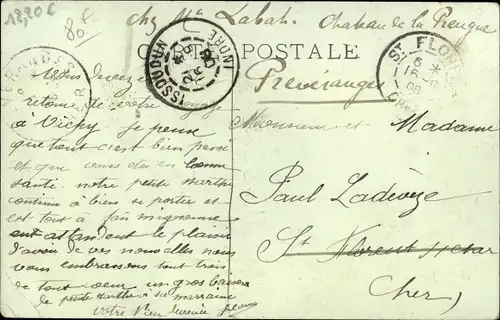 12,20€
80 f
chez Mr Labat Chateau de la Preugne
CARTE POSTALE
ISSOUDUN
INDRE
ST FLORENT
Préveranges
Vous devez
retour de votre voyage
à Vichy je pense
que tout c'est bien passé
et que vous êtes en bonne
santé. notre petite Marthe
continue à bien se porter et
est tout à fait mignonne
en attendant le plaisir
d'avoir de vos nouvelles nous
vous embrassons tout trois
de tout cœur un gros baiser
de petite Marthe à sa marraine
votre
Monsieur et Madame
Paul Ladevèze
St Florent s/ cher
Cher)